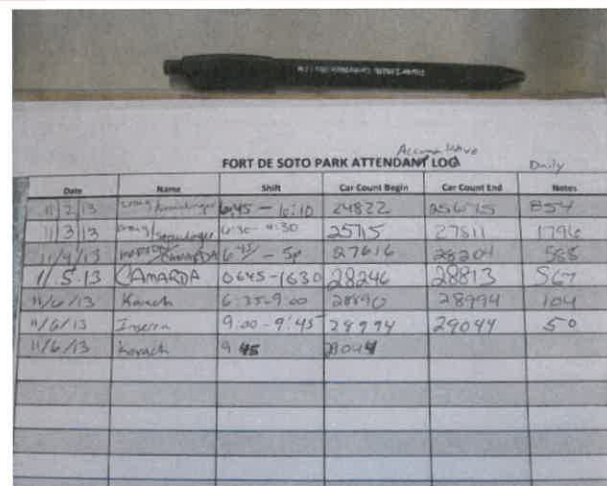 Accumulative
FORT DE SOTO PARK ATTENDANT LOG
Daily
Date Name Shift Car Count Begin Car Count End Notes
11/2/13 Craig 6:45 - 6:10 24822 25675 854
11/3/13 Craig 6:30 - 4:30 25715 27511 1796
11/4/13 CAMARDA 6:45 - 5p 27616 28204 588
11.5.13 CAMARDA 0645-1630 28246 28813 567
11/6/13 Korach 6:35-9:00 28890 28994 104
11/6/13 Inserra 9:00-9:45 28994 29044 50
11/6/13 Korach 9 45 29044